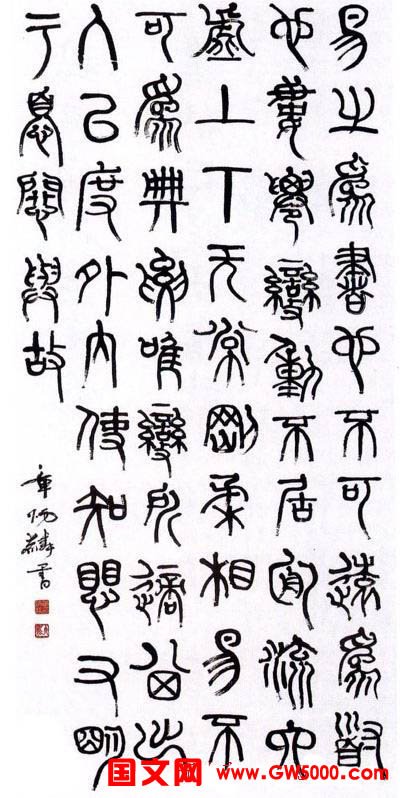 易之為書也不可遠為道
也屢遷變動不居周流六
虛上下无常剛柔相易不
可為典要唯變所適其出
入以度外內使知懼又明
于憂患與故
章炳麟書
国文网 www.GW5000.com